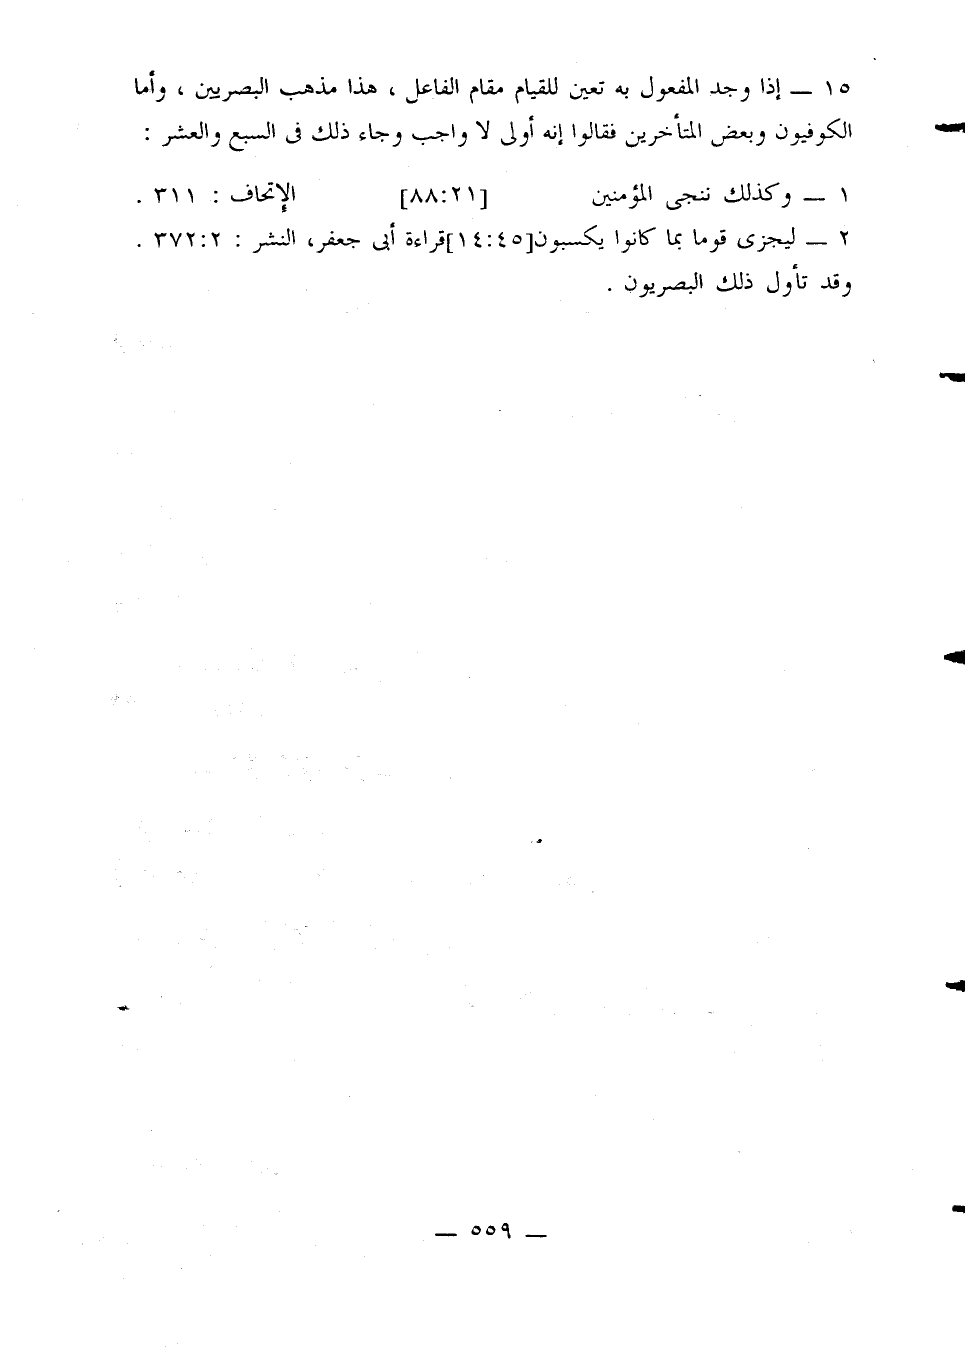 ١٥ — إذا وجد المفعول به تعين للقيام مقام الفاعل ، هذا مذهب البصريين ، وأما
الكوفيون وبعض المتأخرين فقالوا إنه أولى لا واجب وجاء ذلك فى السبع والعشر :
١ — وكذلك ننجى المؤمنين [٨٨:٢١] الإتحاف : ٣١١ .
٢ — ليجزى قوما بما كانوا يكسبون[١٤:٤٥]قراءة أبى جعفر، النشر : ٣٧٢:٢ .
وقد تأول ذلك البصريون .
— ٥٥٩ —